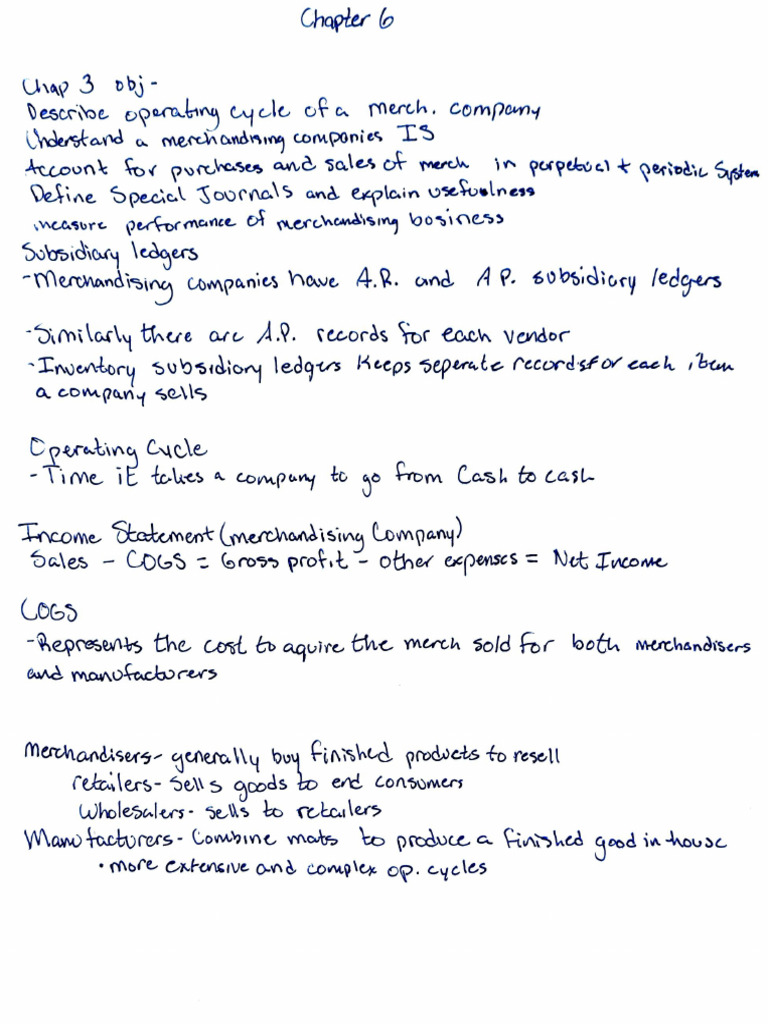 Chapter 6
Chap 3 obj-
Describe operating cycle of a merch. company
Understand a merchandising companies IS
Account for purchases and sales of merch in perpetual + periodic System
Define Special Journals and explain usefulness
measure performance of merchandising business
Subsidiary ledgers
-Merchandising companies have A.R. and A P. subsidiary ledgers
-Similarly there are A.P. records for each vendor
-Inventory subsidiary ledgers Keeps seperate records for each item
a company sells
Operating Cycle
-Time it takes a company to go from Cash to cash
Income Statement (merchandising Company)
Sales - COGS = Gross profit - other expenses = Net Income
COGS
-Represents the cost to aquire the merch sold for both merchandisers
and manufacturers
Merchandisers- generally buy finished products to resell
retailers- sells goods to end consumers
Wholesalers- sells to retailers
Manufacturers- Combine mats to produce a finished good in house
• more extensive and complex op. cycles